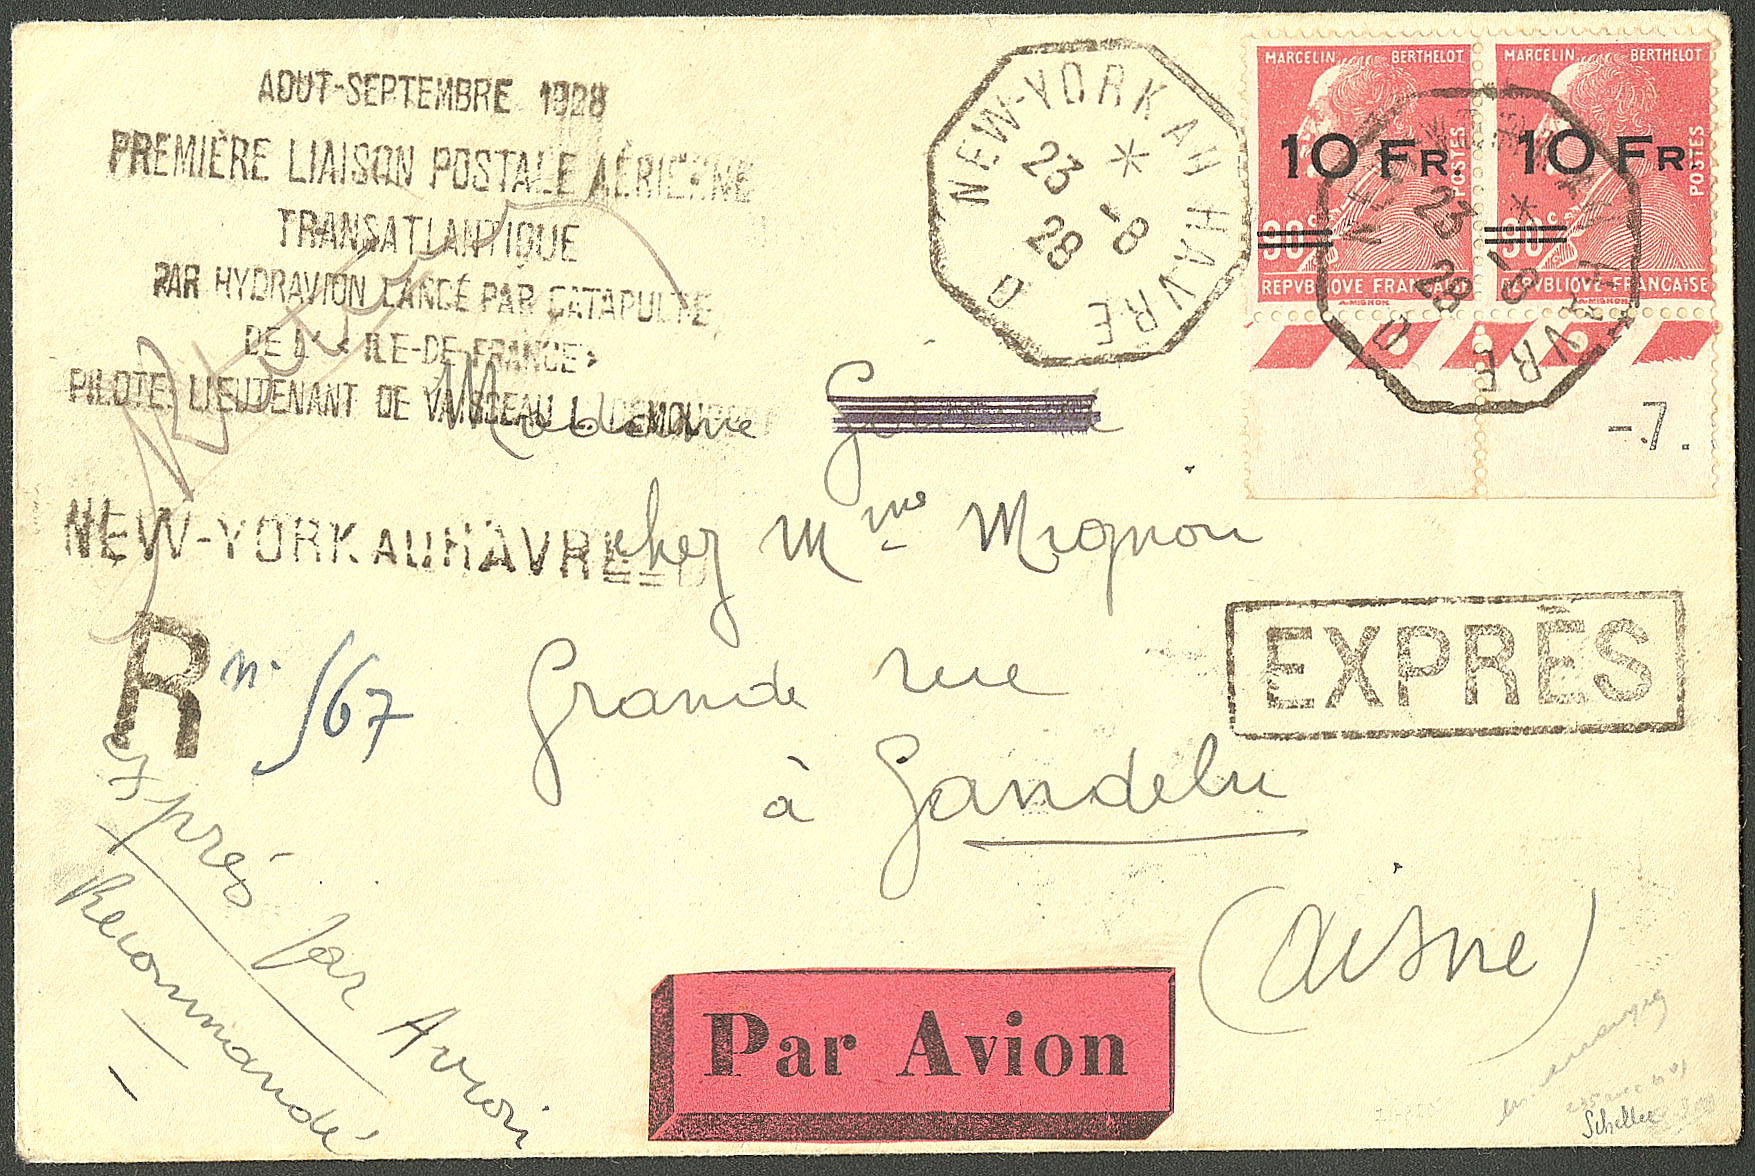 AOUT-SEPTEMBRE 1928
PREMIÈRE LIAISON POSTALE AÉRIENNE
TRANSATLANTIQUE
PAR HYDRAVION LANCÉ PAR CATAPULTE
DE L' « ILE-DE-FRANCE »
PILOTE: LIEUTENANT DE VAISSEAU L. DEMOUGEOT
NEW-YORK AU HAVRE
D
23 -8
28
MARCELIN BERTHELOT
10 FR.
POSTES
90c
REPVBLIQVE FRANÇAISE
A-MIGNON
MARCELIN BERTHELOT
10 FR.
POSTES
90c
REPVBLIQVE FRANÇAISE
A-MIGNON
NEW-YORK AU HAVRE
D
23 -8
28
-7.
Madame
NEW-YORK AU HAVRE
chez Mme Mignon
R no 567
Grande rue
EXPRÈS
à Gandelu
(Aisne)
exprés par Avion
Recommandé
Par Avion
Scheller